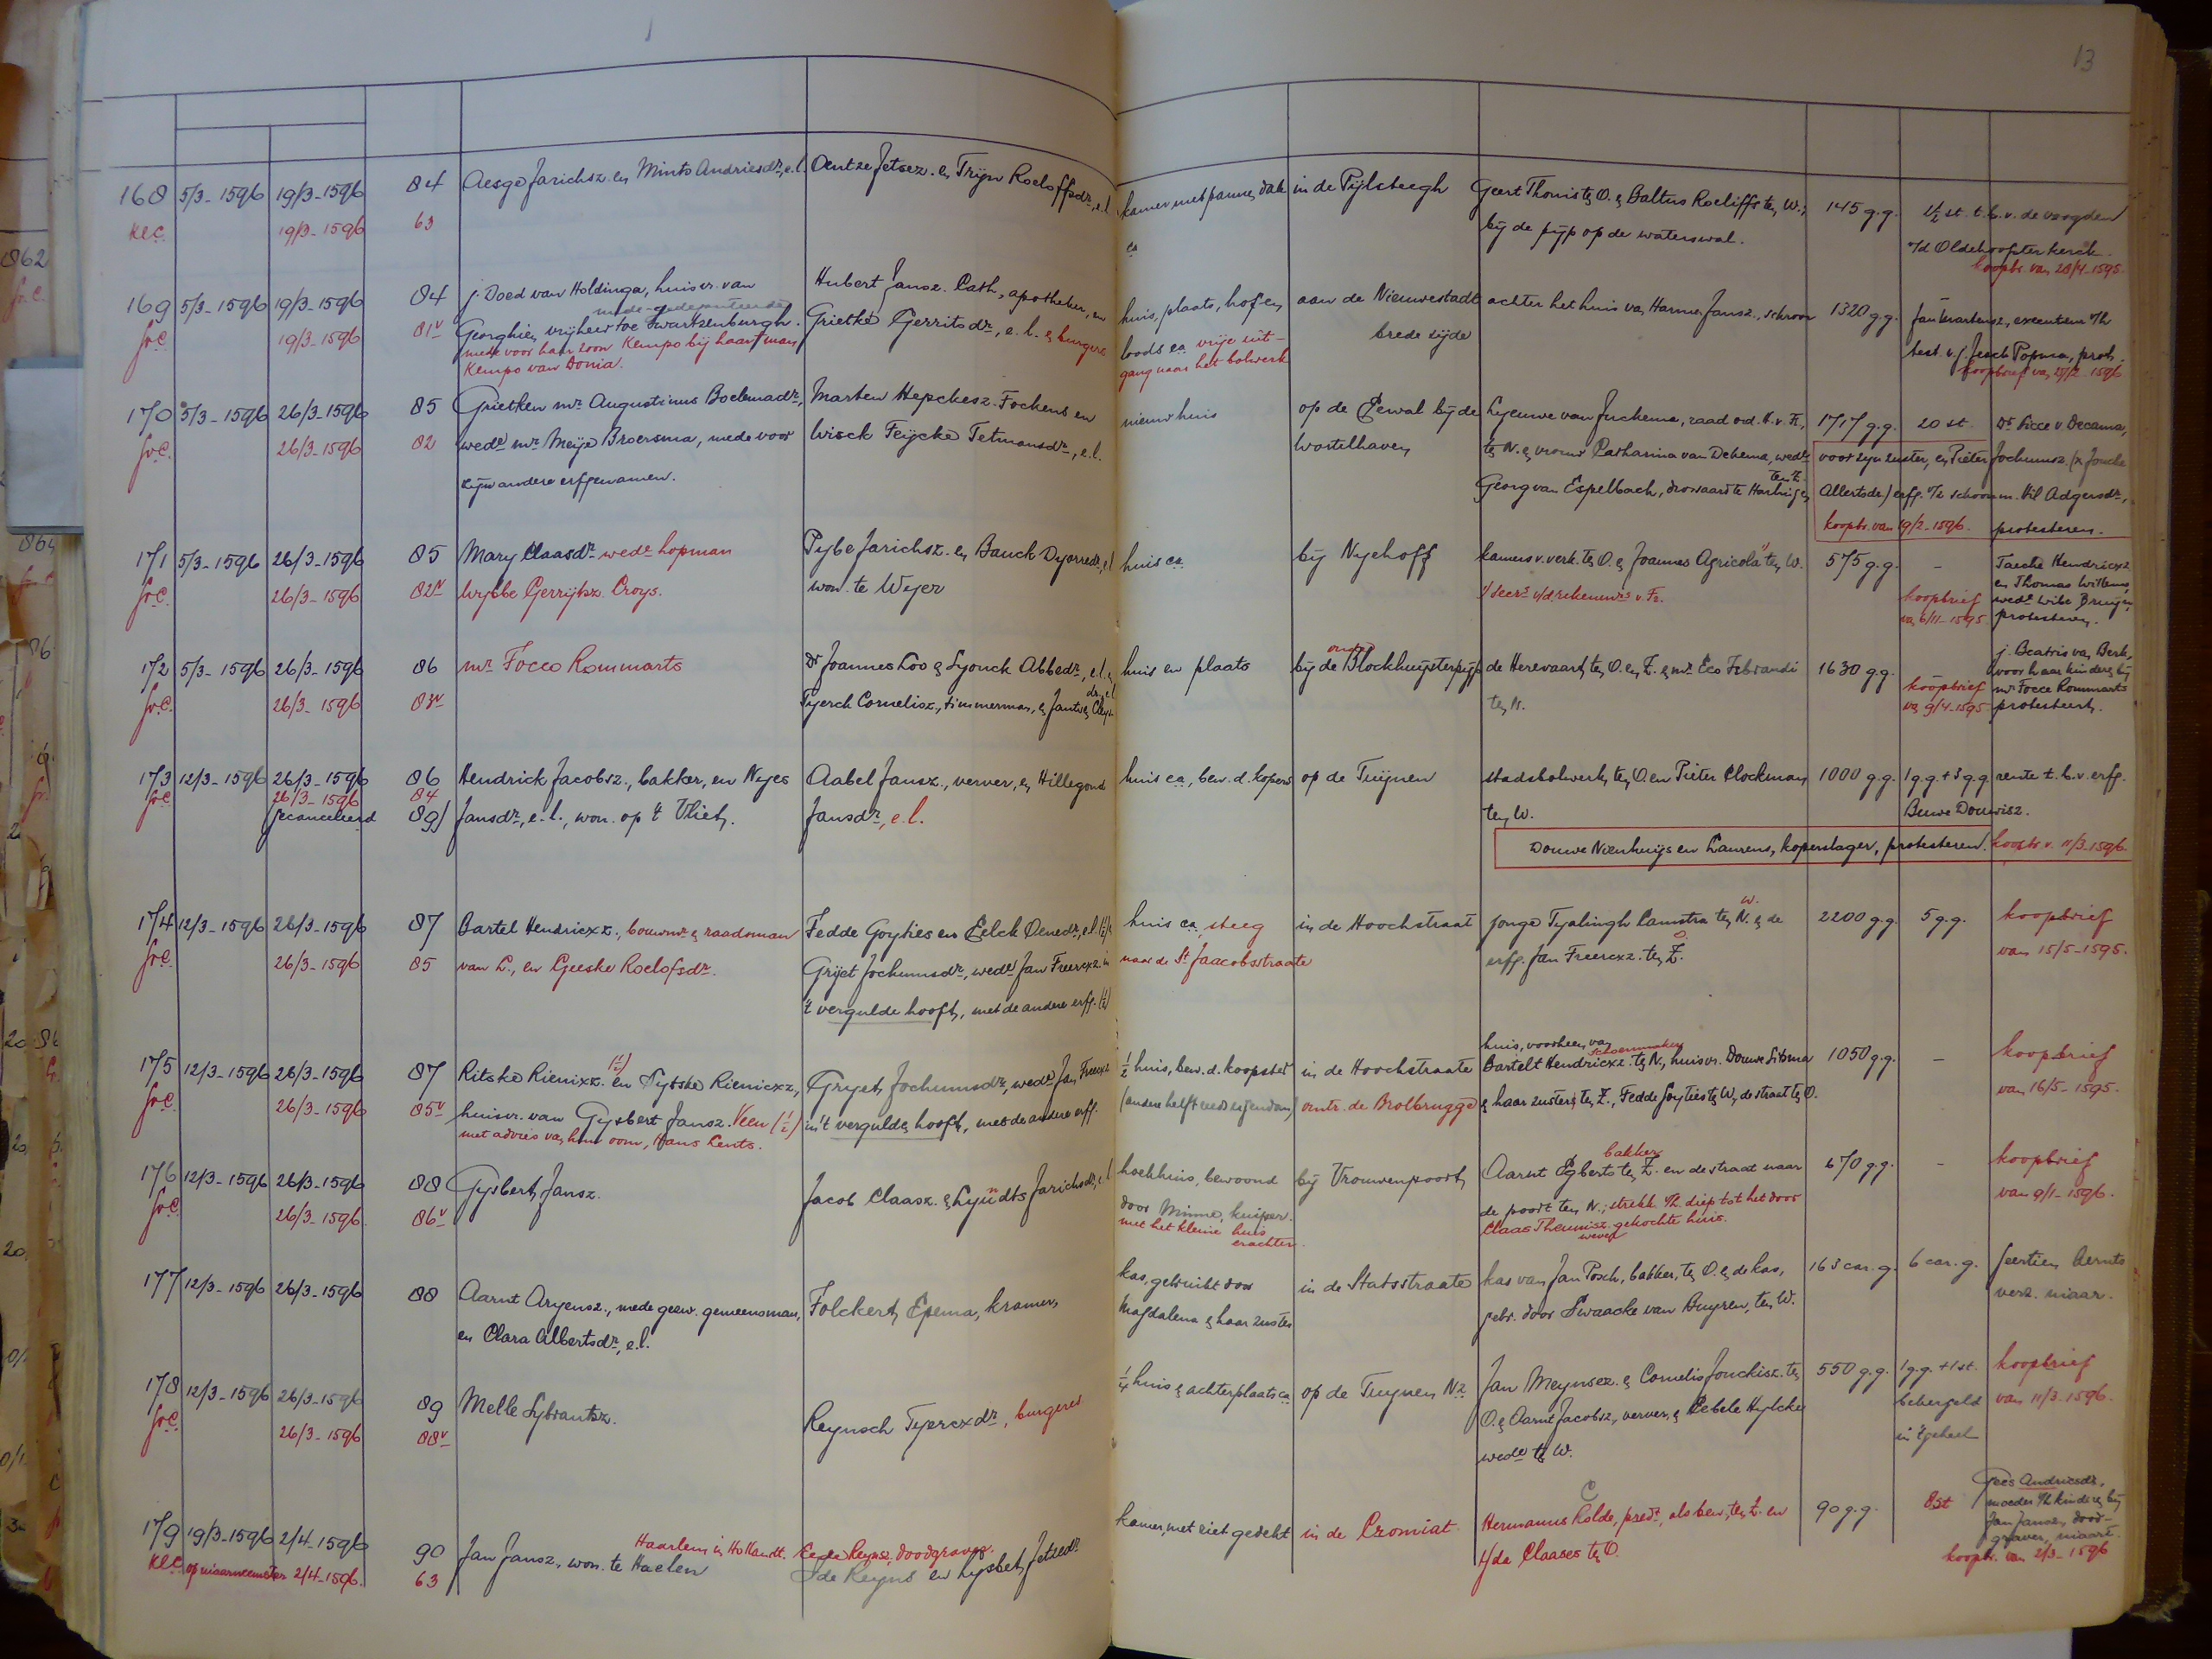 13
168 5/3-1596 19/3-1596 84 Aesge Jarichsz. en Minto Andriesdr., e.l. Oentze Jetsez. en Trijn Roeloffsdr., e.l. kamer met pannen dak in de Pijlsteegh Geert Thonis ten O. en Baltus Roeliffs ten W.; 145 g.g. 1/2 st. t.b.v. de voogden
rec. 19/3-1596 63 ca bij de pijp op de waterswal. v/d Oldehoofster kerck.
koopbr. van 28/4-1595.
169 5/3-1596 19/3-1596 84 j. Doed van Holdinga, huisvr. van Hubert Jansz. Cath, apotheker, en huis, plaats, hof en aan de Nieuwestadt achter het huis van Harmen Jansz., schroor 1320 g.g. Jan Martensz., executeur v/h
mede-gedeputeerde
pr.c. 19/3-1596 81v Georghien, vrijheer toe Swartzenburgh. Grietke Gerritsdr., e.l. & burgers loods ca. vrije uit- brede zijde test. v. j. Jesck Popma, prot.
mede voor haar zoon Kempo bij haar man gang naar het bolwerk koopbrief van 27/2 1596
Kempo van Donia.
170 5/3-1596 26/3-1596 85 Grietken mr. Augustinus Boelemadr., Marten Hepckesz. Fockens en nieuw huis op de Eewal bij de Lyeuwe van Juckema, raad o.d. H.v. Fr., 1717 g.g. 20 st. Dr. Sicce v. Decama,
pr.c. 26/3-1596 82 wede mr. Meije Broersma, mede voor Wisck Feijcke Tetmansdr., e.l. Wortelhaven ten N. en vrouw Catharina van Dekema, wede voor zijn zuster, en Pieter Jochumsz. (x Jouck
ten Z.
zijn andere erfgenamen. Georg van Espelbach, drossaard te Harlingen Allertsdr.) erfg. v/z schoonm. Hil Adgersdr.,
koopbr. van 19/2-1596. protesteren.
171 5/3-1596 26/3-1596 85 Mary Claasdr. wede hopman Pybe Jarichsz. en Bauck Dyorredr., e.l. huis ca. bij Nyehoff kamers v. verk. ten O. en Joannes Agricola ten W. 575 g.g. - Taecke Hendricxz.
pr.c. 26/3-1596 82v Wybbe Gerrijtsz. Croys. won. te Weyer v/d rekenmrs v. Fr. koopbrief en Thomas Willems
van 6/11-1595 wede Wibe Bruyn,
protesteren.
172 5/3-1596 26/3-1596 86 mr. Focco Rommarts Dr. Joannes Loo & Lyonck Abbedr., e.l. & huis en plaats bij de Blockhuysterpijp de Herevaart ten O. en Z. & mr. Eco Isbrandi 1630 g.g. j. Beatris van Berk,
pr.c. 26/3-1596 83v Tyerck Cornelisz., timmerman, & ten N. koopbrief voor haar kinderen bij
van 9/4-1595 mr. Focce Rommarts
protesteert.
173 12/3-1596 26/3-1596 86 Hendrick Jacobsz., bakker, en Nyes Aabel Jansz., verver, en Hillegond huis ca., bew. d. kopers op de Tuijnen stadsbolwerk ten O. en Pieter Clockman 1000 g.g. 1 g.g. + 3 g.g. rente t.b.v. erfg.
pr.c. 26/3-1596 84
gecancelleerd 89) Jansdr., e.l., won. op 't Vliet. Jansdr., e.l. ten W. Buwe Douwisz.
Douwe Nienhuijs en Laurens, koperslager, protesteren. koopbr. v. 11/3-1596.
174 12/3-1596 26/3-1596 87 Bartel Hendricxz., bouwmr. & raadsman Fedde Goyties en Eelck Oenedr., e.l. (1/2) & huis ca. steeg in de Hoochstraat jonge Tyalingh Camstra ten N. W. & de 2200 g.g. 5 g.g. koopbrief
pr.c. 26/3-1596 85 van L., en Geeske Roelofsdr. Grijet Jochumsdr., wede Jan Freercxz. in naar de St Jaacobsstraate erfg. Jan Freercxz. ten Z. O. van 15/5-1595.
't vergulde hooft, met de andere erfg. (1/2)
175 12/3-1596 26/3-1596 87 Ritske Rienixz. (1/2) en Sytske Rienicxz., Gryet Jochumsdr., wede Jan Freercxz. 1/2 huis, bew. d. koopster in de Hoochstraate huis, voorheen van 1050 g.g. - koopbrief
schoenmaker
Bartelt Hendricxz. ten N., huisvr. Douwe Sitsma
pr.c. 26/3-1596 85v huisvr. van Gysbert Jansz. Veen (1/2) in 't vergulde hooft, met de andere erfg. (andere helft reeds eigendom) omtr. de Brolbrugge & haar zusters ten Z., Fedde Goyties ten W., de straat ten O. van 16/5-1595.
met advies van hun oom, Hans Lents.
176 12/3-1596 26/3-1596 88 Gysbert Jansz. Jacob Claasz. & Lyndts Jarichsdr., e.l. hoekhuis, bewoond bij Vrouwenpoort Aarnt Egberts bakker ten Z. en de straat naar 670 g.g. - koopbrief
pr.c. 26/3-1596. 86v door Minne, kuiper. de poort ten N.; strekk. v/h diep tot het door van 9/1-1596.
met het kleine huis Claas Theunisz. wever gekochte huis.
erachter.
177 12/3-1596 26/3-1596 88 Aarnt Aryensz., mede gezw. gemeensman, Folckert Epema, kramer, kas, gebruikt door in de Statsstraate kas van Jan Posch, bakker, ten O. en de kas, 163 car. g. 6 car. g. Feertien Aernts
en Clara Albertsdr., e.l. Magdalena & haar zuster gebr. door Swaacke van Buyren, ten W. verz. niaar.
178 12/3-1596 26/3-1596 89 Melle Sybrantsz. Reynsch Tyercxdr., burgeres 1/4 huis & achterplaats ca op de Tuynen Nz. Jan Meynsez. & Cornelis Jouckisz. ten 550 g.g. 1 g.g. + 1 st. koopbrief
pr.c. 26/3-1596 88v O. & Aarnt Jacobsz., verver, & Bebele Hylckes bekergeld van 11/3-1596.
wede ten W. in 't geheel
179 19/3-1596 2/4-1596 90 Jan Jansz., won. te Haelen Haarlem in Hollandt. Eede Reynsz., doodgraver kamer, met riet gedekt in de Cromiat. Hermanus Colde, predt., als bew., ten Z. en 90 g.g. 8 st Gees Andriesdr.,
rec. op niaarneemster 2/4-1596. 63 Ede Reyns en Lysbet Jetsedr. v/de Claases ten O. moeder v/h kinderen bij
Jan Jansen, dood-
graver, niaart.
koopbr. van 2/3-1596